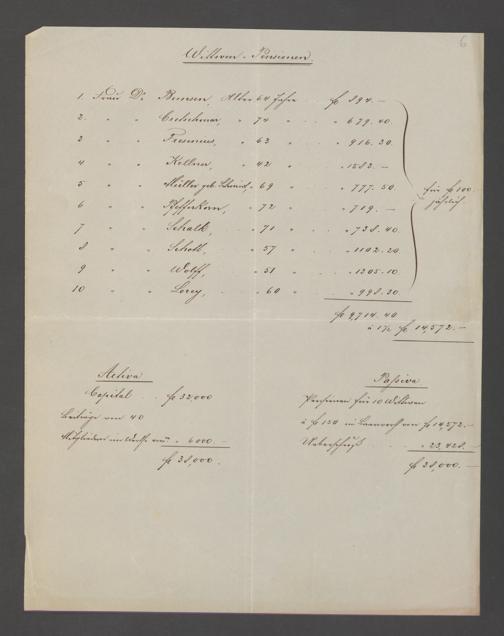 6
Wittwen-Pensionen.
1. Frau Dr. Bunsen, Alter 64 Jahre fl 894.—
2. " " " 74 " " 679.40.
3 " " Fresenius, " 62 " " 916.30.
4 " " Kellner, " 42 " " 1583.—
5 " " Müller geb. " 69 " " 777.50
6 " " Pfefferkorn, " 72 " " 719.—
7 " " Schalk, " 71 " " 738.40.
8 " " Schott, " 57 " " 1102.20
9 " " Wolff, " 51 " " 1305.10
10 " " Lorey, " 60 " " 998.30
für fl 100.—
jährlich
fl 9,714.40
à 1½ fl 14,572.—
Activa
Capital fl 32,000
Beiträge von 40
Mitgliedern im Werthe von " 6000.—
fl 38,000.
Passiva
Pensionen für 10 Wittwen
à fl 150 im von fl 14,572.—
Ueberschuß " 23,428.—
fl 38,000.—